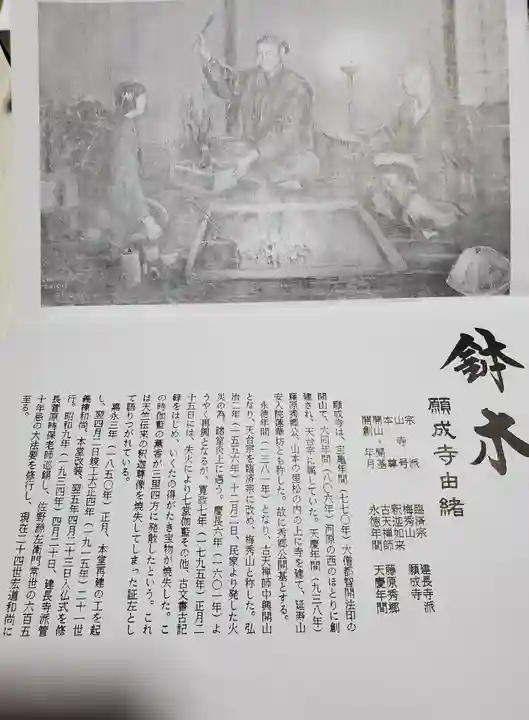 鉢木
願成寺由緒
宗派 臨済宗 建長寺派
山寺号 梅秀山 願成寺
本尊 釈迦如来
開山・開基 古天禅師 藤原秀郷
開創年月 永徳年間 天慶年間
願成寺は、宝亀年間(七七〇年)火僧都智開法印の
開山で、大同年間(八〇六年)河原の西のほとりに創
建され、天台宗に属していた。天慶年間(九三八年)
藤原秀郷公、山本の里松の内の上に寺を建て、延寿山
安入院蓮華坊とも称した。故に秀郷公開基とする。
永徳年間(一三八一年)となり、古天禅師中興開山
となり、天台宗を臨済宗に改め、梅秀山と称した。弘
治二年(一五五六年)十二月二日、民家より発した火
災の為、諸堂炎上に遇う。慶長六年(一六〇一年)よ
うやく再興となるが、寛政七年(一七九五年)正月二
十五日には、失火により七堂伽藍その他、古文書古記
録をはじめ、いくたの得がたき宝物が焼失した。こ
の時伽藍の薫香が三里四方に発散したという。これ
は天竺伝来の釈迦尊像を焼失してしまった証左とし
て語りつがれている。
嘉永三年(一八五〇年)正月、本堂再建の工を起
し、翌四月二日竣工大正四年(一九一五年)二十一世
義棟和尚、本堂改装、翌五年四月二十三日入仏式を修
行。昭和九年(一九三四年)四月二十日、建長寺派管
長菅原時保老師巡錫し、佐野源左衛門常世の六百五
十年忌の大法要を修行し、現在二十四世宏道和尚に
至る。